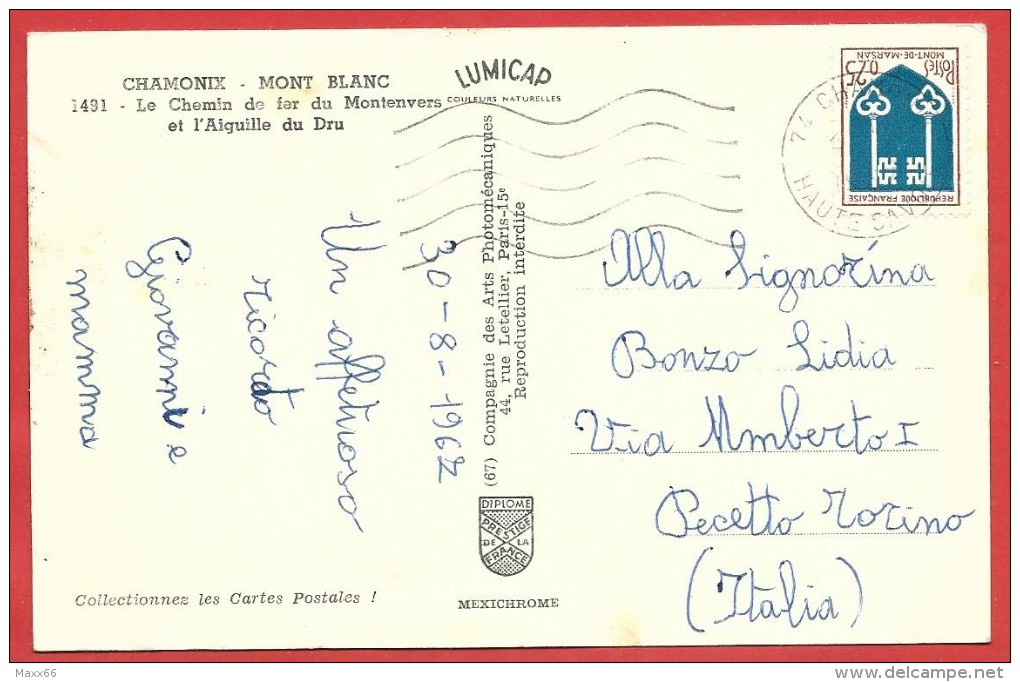 CHAMONIX - MONT BLANC
1491 - Le Chemin de fer du Montenvers
et l'Aiguille du Dru
LUMICAP
COULEURS NATURELLES
Postes
0,25
MONT-DE-MARSAN
REPUBLIQUE FRANÇAISE
74
HAUTE SAVOIE
30-8-1962
Un affettuoso
ricordo
Giovanni e
mamma
(67) Compagnie des Arts Photomécaniques
44, rue Letellier, Paris-15e
Reproduction interdite
Alla Signorina
Bonzo Lidia
Via Umberto I
Pecetto Torino
(Italia)
DIPLOME
PRESTIGE
DE LA
FRANCE
MEXICHROME
Collectionnez les Cartes Postales !
Maxx66
delcampe.net